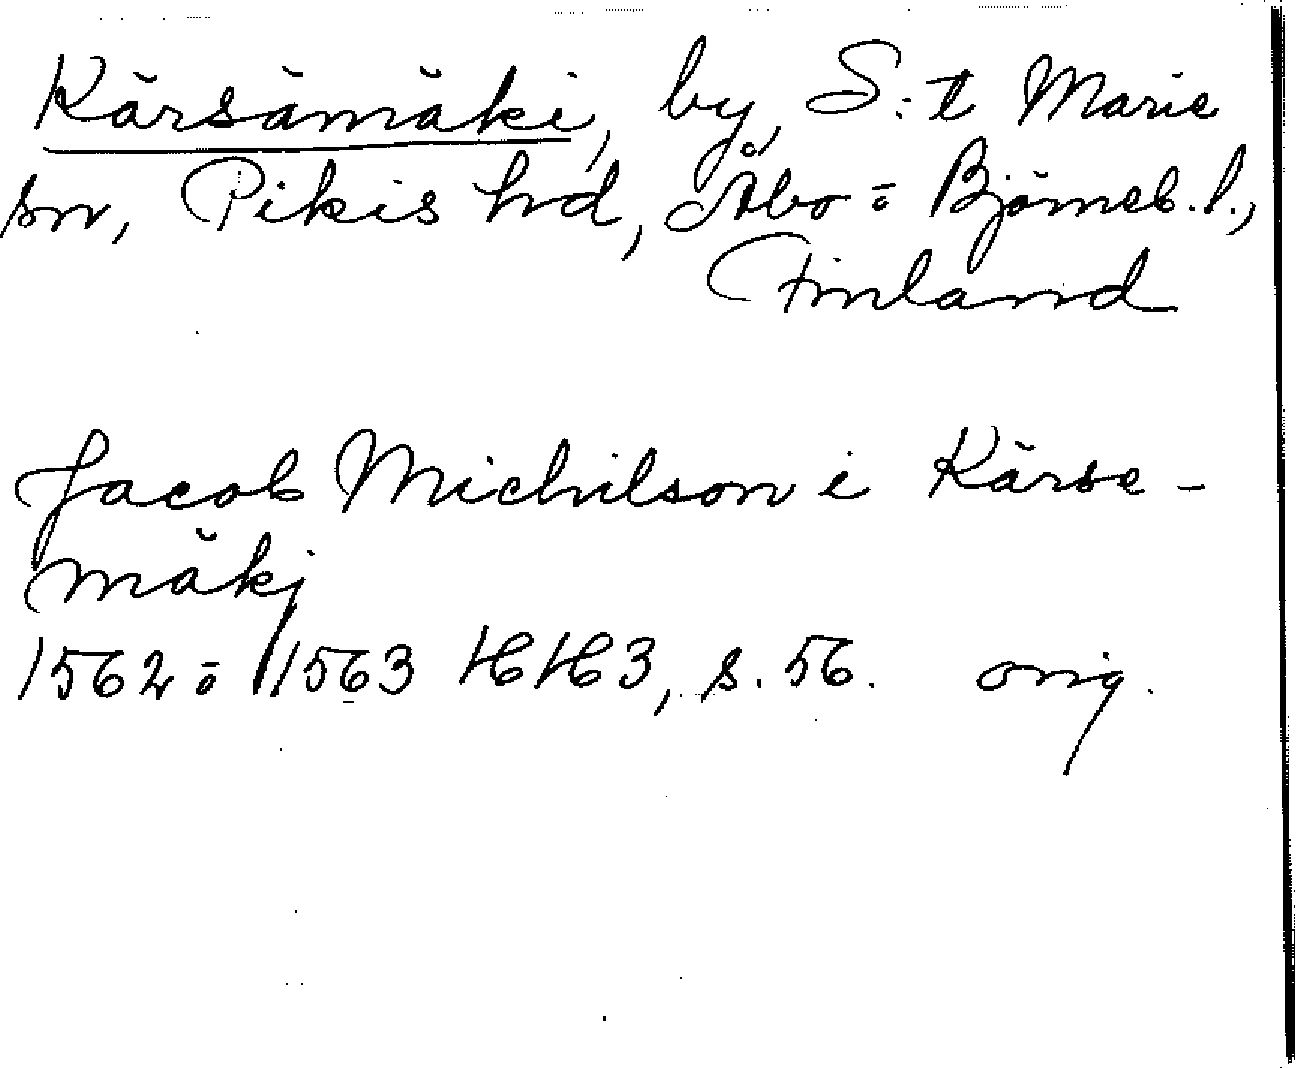 Kärsämäki, by, S:t Marie
sn, Pikis hd, Åbo = Björneb. l.,
Finland
Jacob Michilson i Kärse-
mäkj
1562 = 1563 HH3, s. 56. orig.